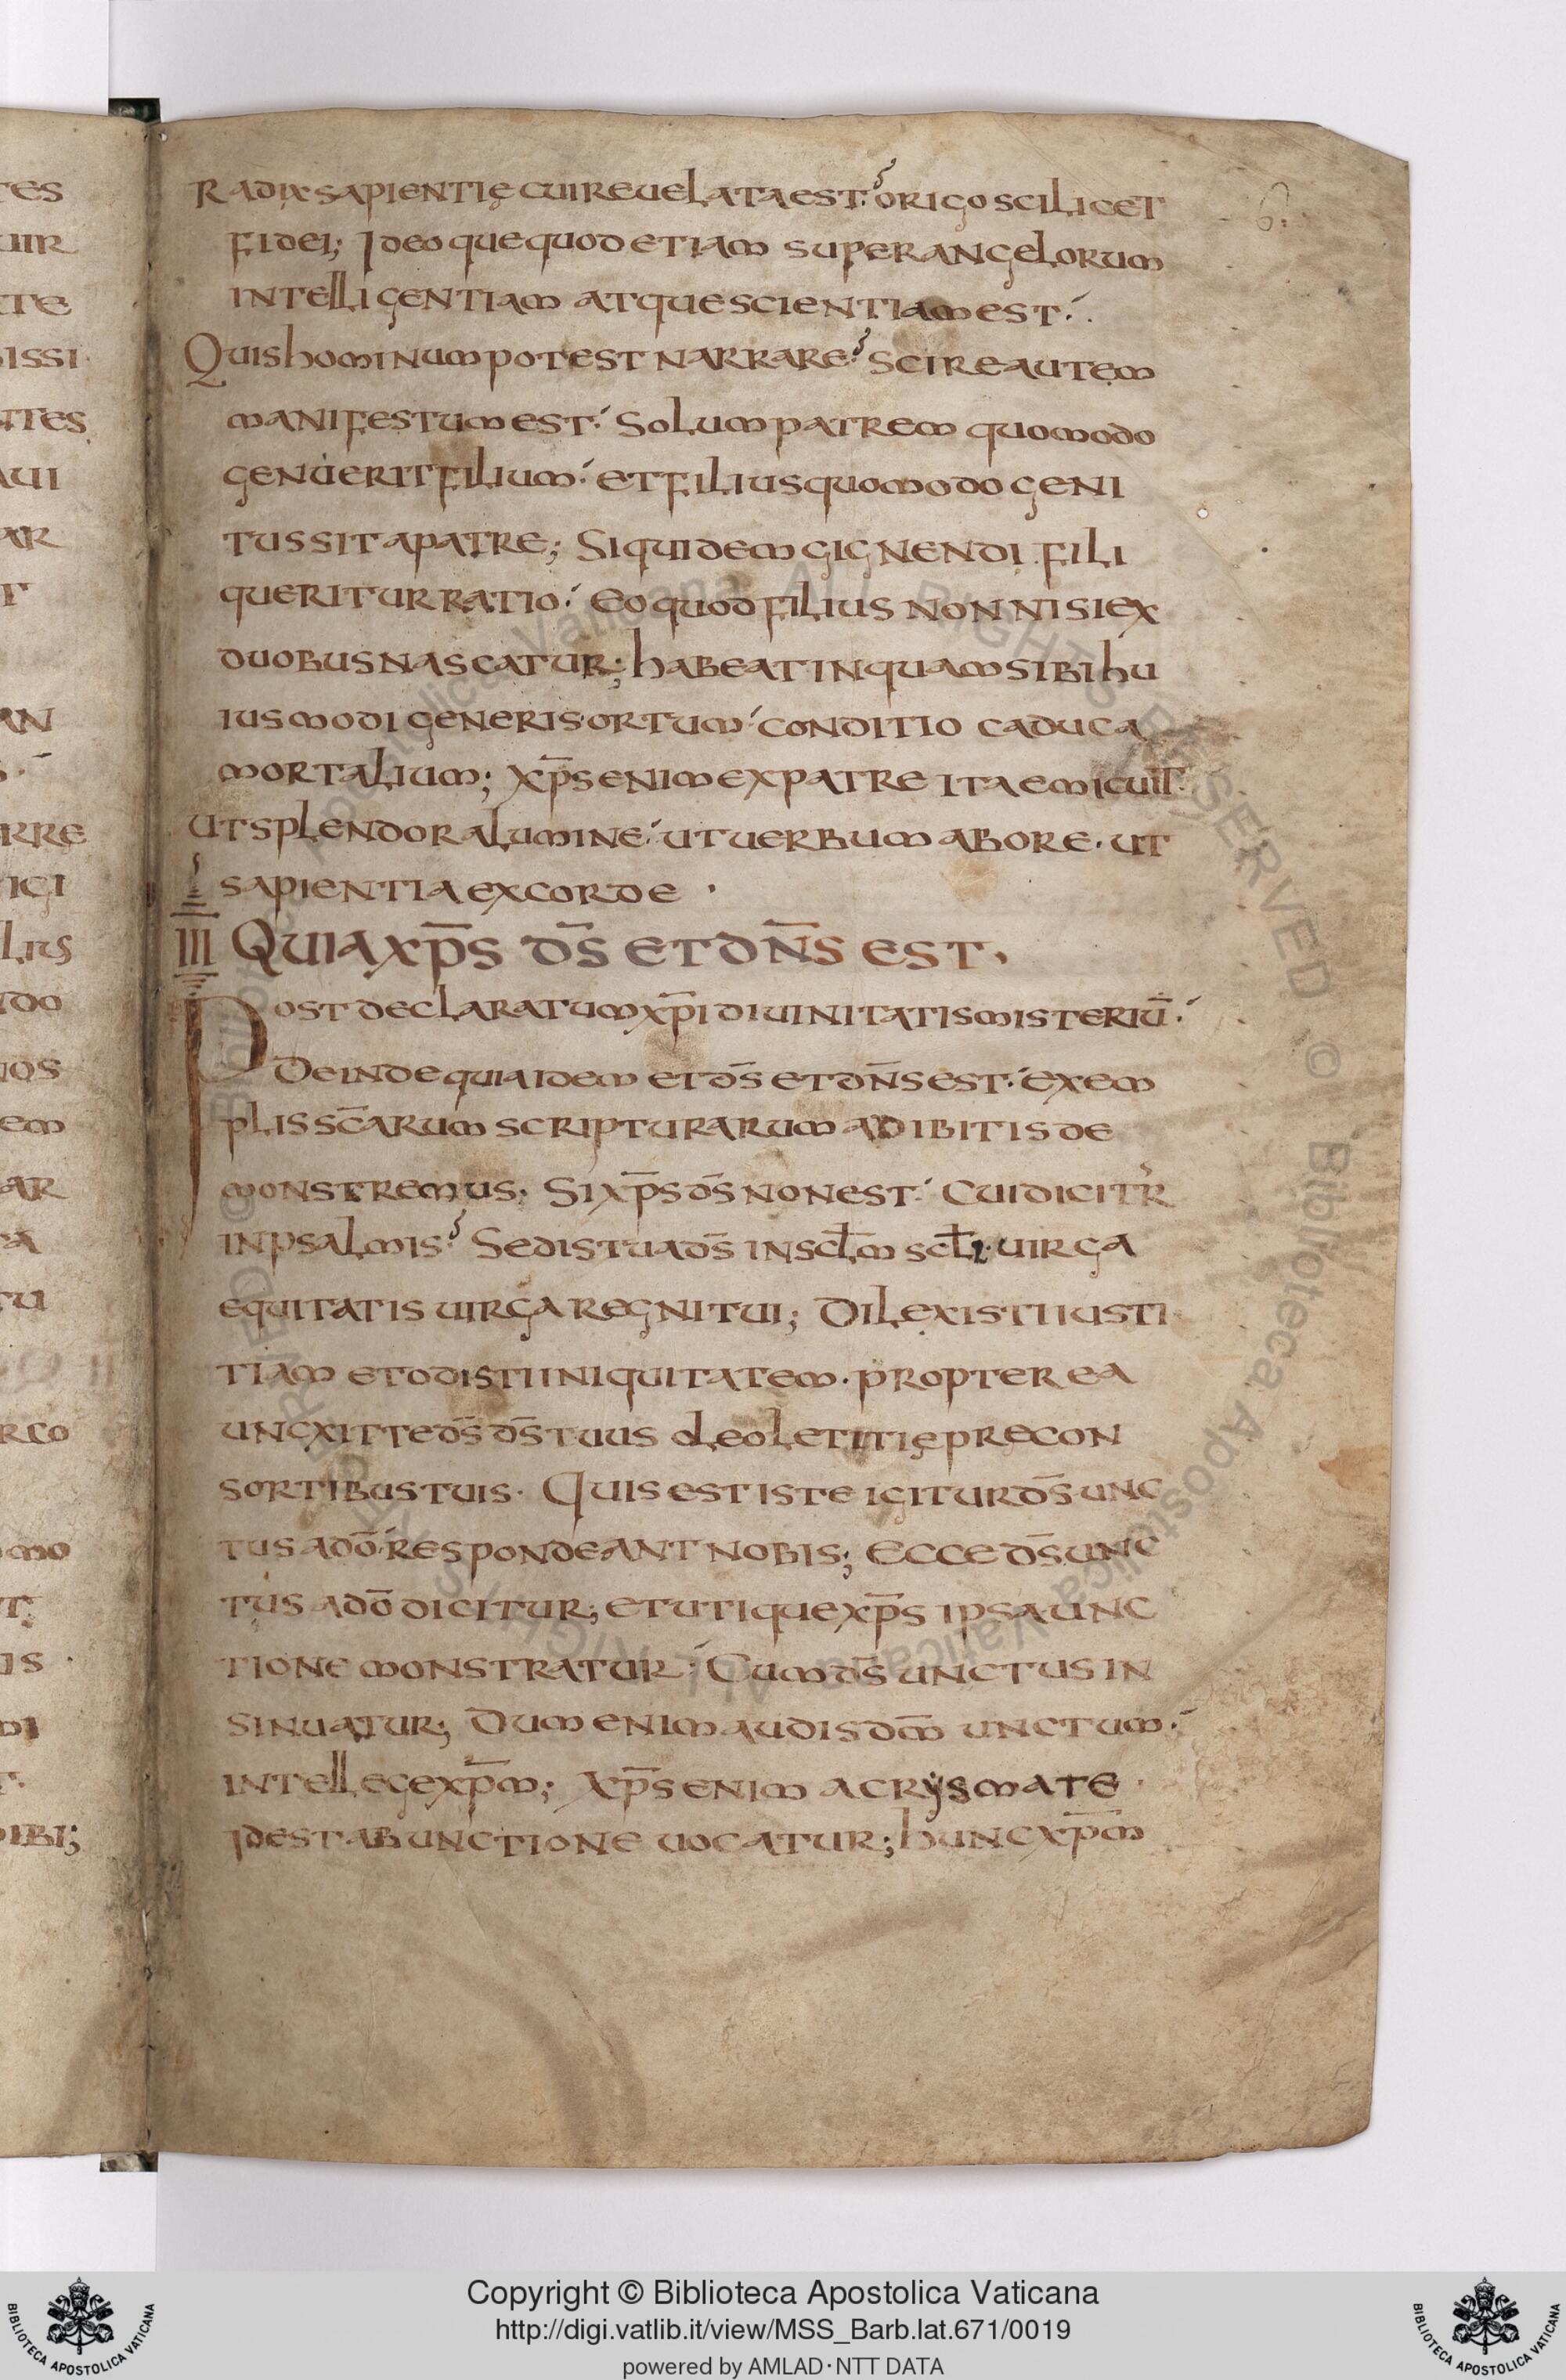 6.
Radix sapientię cui reuelata est? origo scilicet
fidei; Ideoque quod etiam super angelorum
intelligentiam atque scientiam est.
Quis hominum potest narrare? Scire autem
manifestum est. Solum patrem quomodo
genuerit filium. et filius quomodo geni
tus sit a patre; Siquidem gignendi fili
queritur ratio. eo quod filius non nisi ex
duobus nascatur; habeat inquam sibi hu
iusmodi generis ortum. conditio caduca
mortalium; xp̄s enim ex patre ita emicuit.
ut splendor a lumine. ut uerbum ab ore. ut
sapientia ex corde .
III Quia xp̄s d̄s et dn̄s est.
Post declaratum xp̄i diuinitatis misteriū.
Deinde quia idem et d̄s et dn̄s est. exem
plis sc̄arum scripturarum adibitis de
monstremus. Si xp̄s d̄s non est. Cui dicitr̓
in psalmis? Sedis tua d̄s in scłm scłi. uirga
equitatis uirga regni tui; Dilexisti iusti
tiam et odisti iniquitatem. propterea
uncxit te d̄s d̄s tuus oleo letitię pre con
sortibus tuis. Quis est iste igitur d̄s unc
tus a dō. respondeant nobis; Ecce d̄s unc
tus a dō dicitur; et utique xp̄s ipsa unc
tione monstratur. Cum d̄s unctus in
sinuatur; Dum enim audis dm̄ unctum.
intellege xp̄m; Xp̄s enim a crysmate
idest ab unctione uocatur; hunc xp̄m
Copyright © Biblioteca Apostolica Vaticana
http://digi.vatlib.it/view/MSS_Barb.lat.671/0019
powered by AMLAD·NTT DATA
BIBLIOTECA APOSTOLICA VATICANA
BIBLIOTECA APOSTOLICA VATICANA